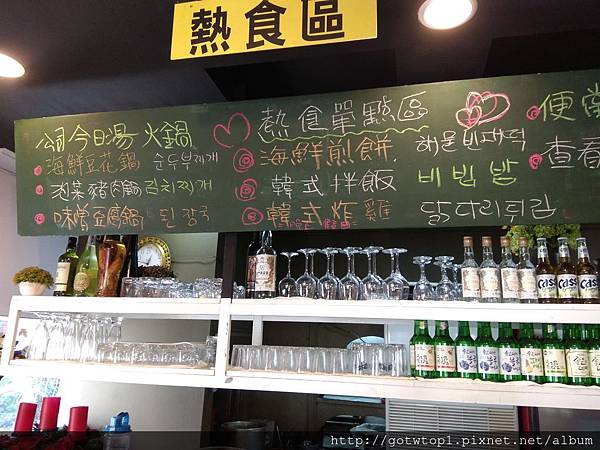 熱食區
今日湯火鍋
海鮮豆花鍋 순두부찌개
泡菜豬肉鍋 김치찌개
味噌豆腐鍋 된장국
熱食單點區
海鮮煎餅 해물빈대떡
韓式拌飯 비빔밥
韓式炸雞 닭다리튀김
便當
查看
Cass
Cass
Cass
http://gotwtop1.pixnet.net/album